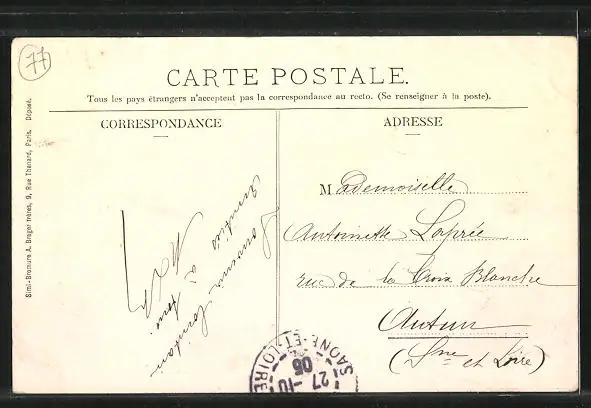 77
CARTE POSTALE.
Tous les pays étrangers n'acceptent pas la correspondance au recto. (Se renseigner à la poste).
CORRESPONDANCE
ADRESSE
Mademoiselle
Antoinette Laprée
rue de la Croix Blanche
Autun
(Sne et Loire)
Amitiés
à tous
SAONE-ET-LOIRE
27-10
06
Simi-Bromure A. Breger frères, 9, Rue Thenard, Paris. Déposé.